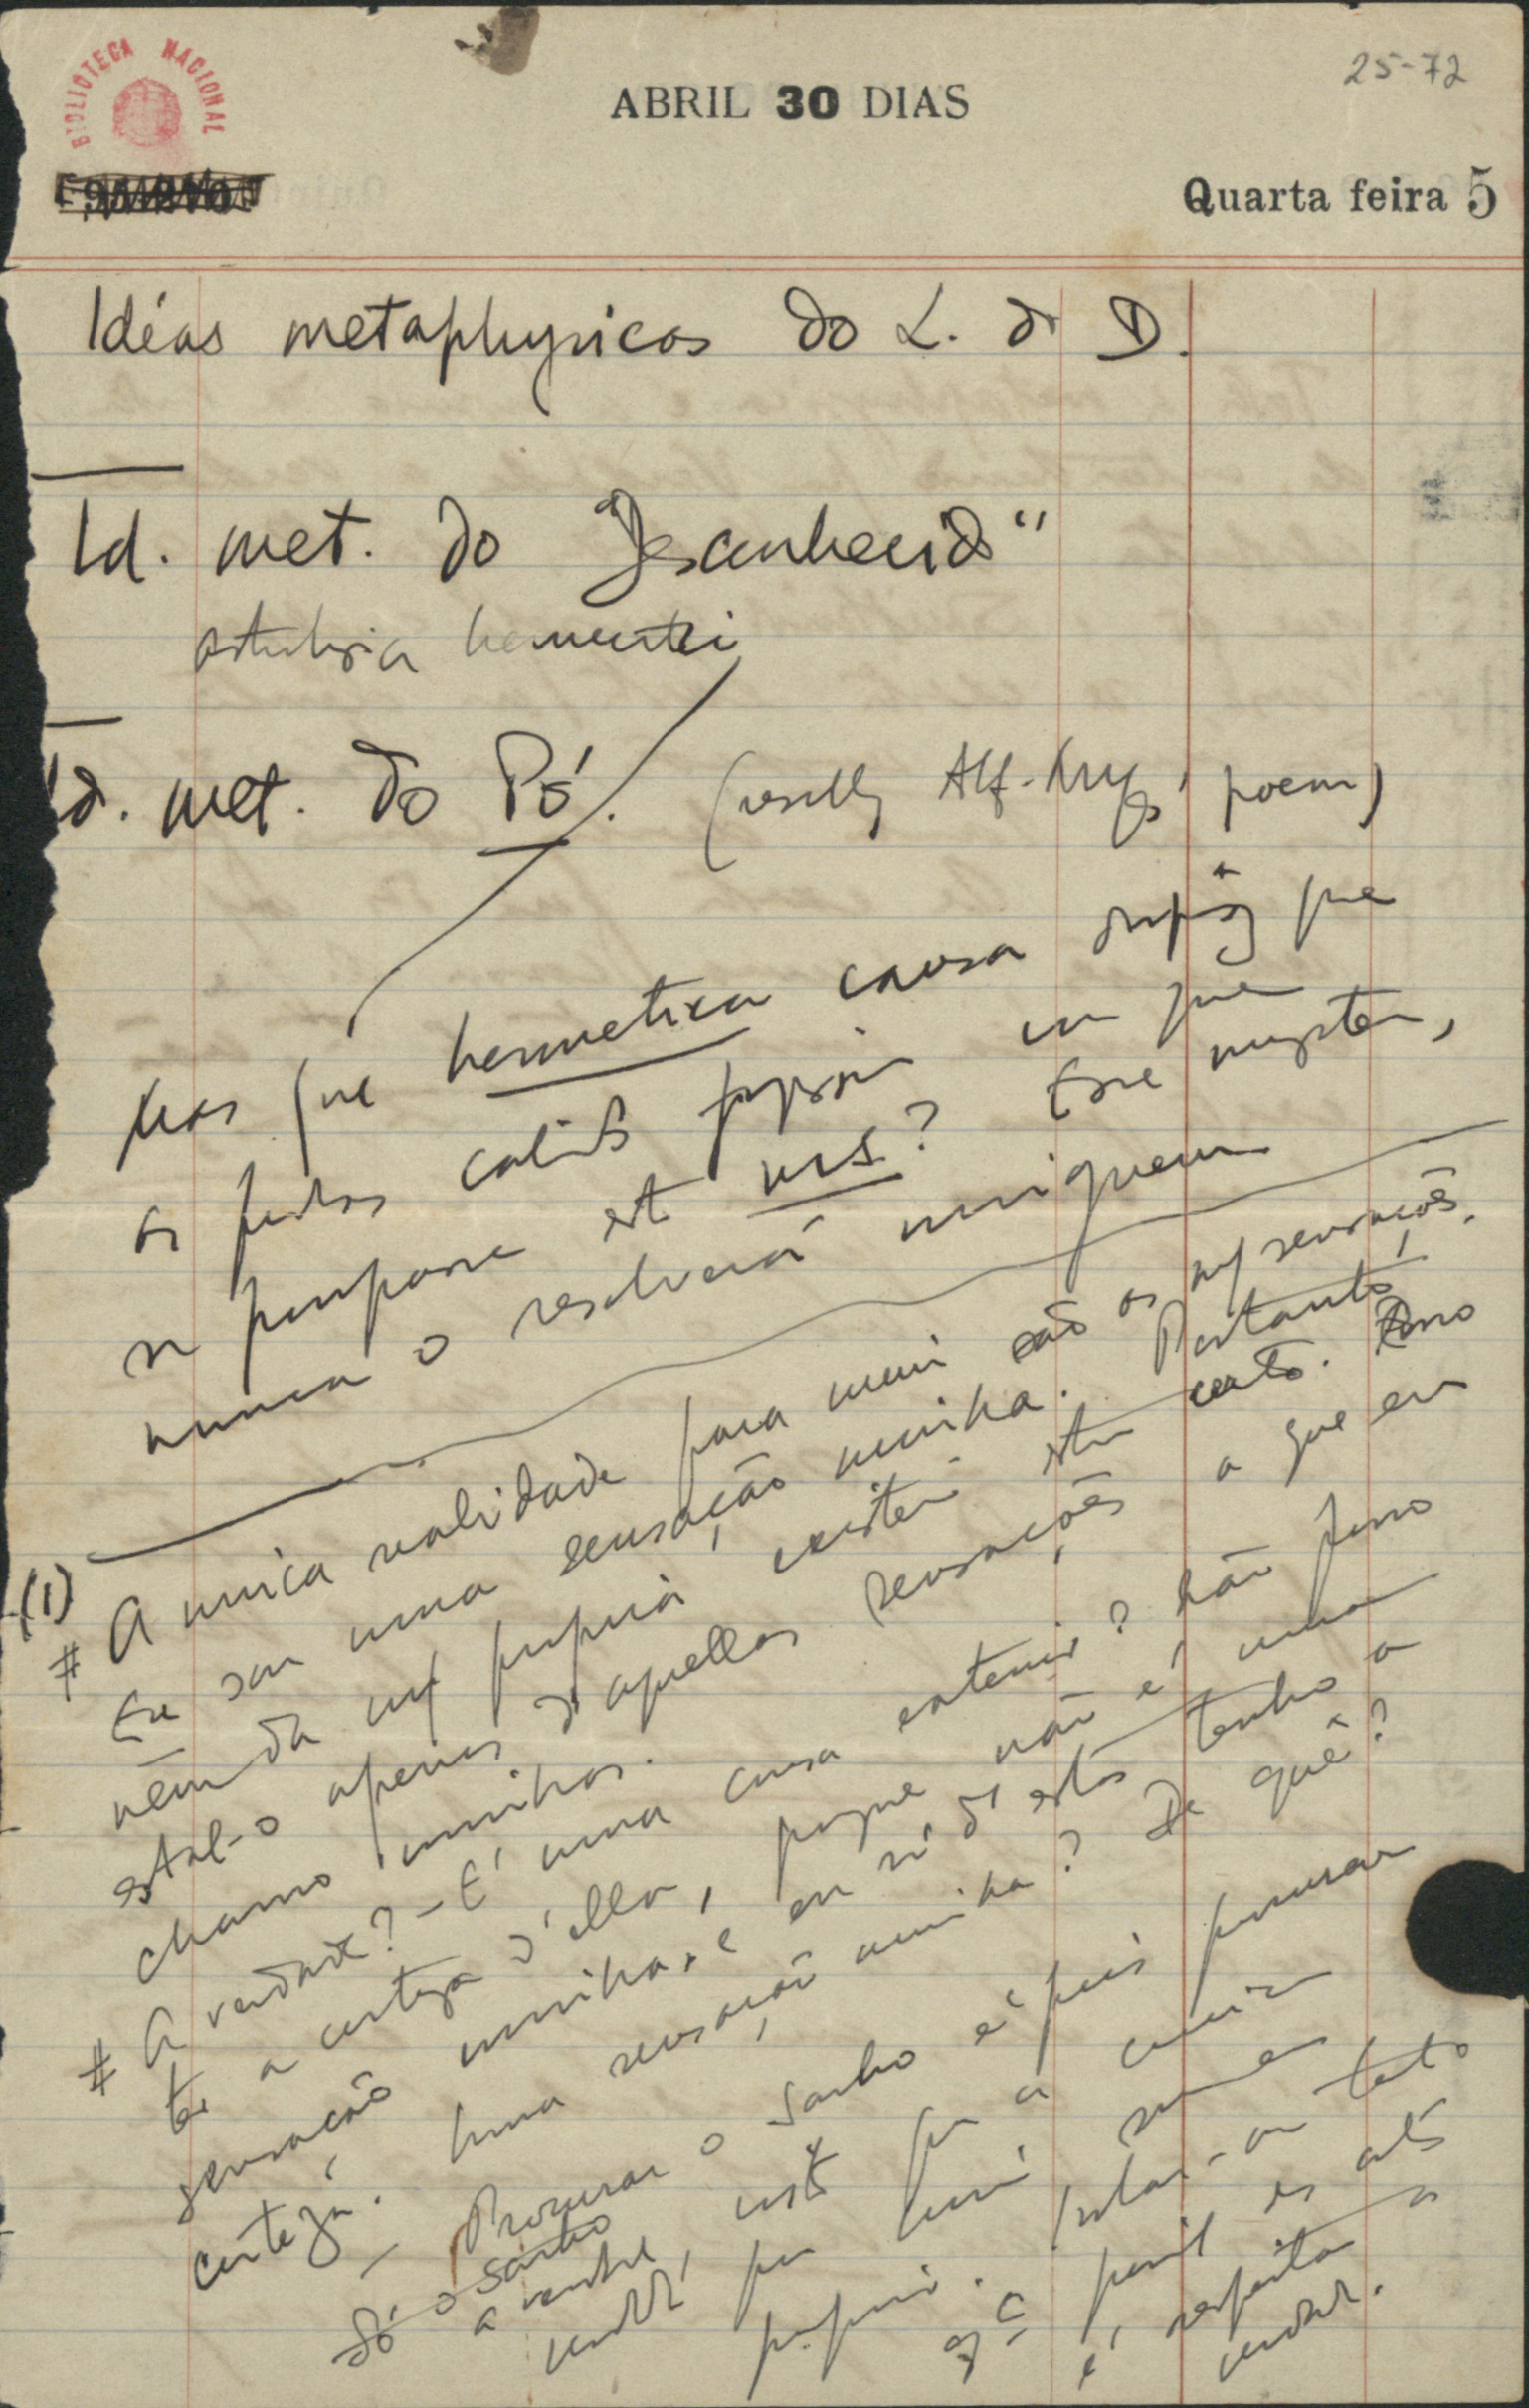 BIBLIOTECA NACIONAL
25-72
ABRIL 30 DIAS
Quarta feira 5
Idéas metaphysicas do L. do D.
Id. met. do "Desconhecido"
Id. met. do Pó. (poem)
Mas que hermetica causa suppõz que
os
se está nos? Esse mysterio,
nunca o resolverá ninguem
(1)
# A unica realidade para mim são as m/ sensações.
Eu sou uma sensação minha. Portanto
nem da m/ propria existencia estou certo. Posso
estal-o apenas d'aquellas sensações a que eu
chamo minhas.
# A verdade? — É uma cousa exterior? Não posso
ter a certeza d'ella, porque não é uma
sensação minha, e eu só d'estas tenho a
certeza. Uma sensação minha? De quê?
— Procurar o sonho é pois procurar
Só o sonho
a verdade, visto que a unica
verdade para mim sou eu
proprio. Isolar-me tanto
dos outros
é respeitar a
verdade.